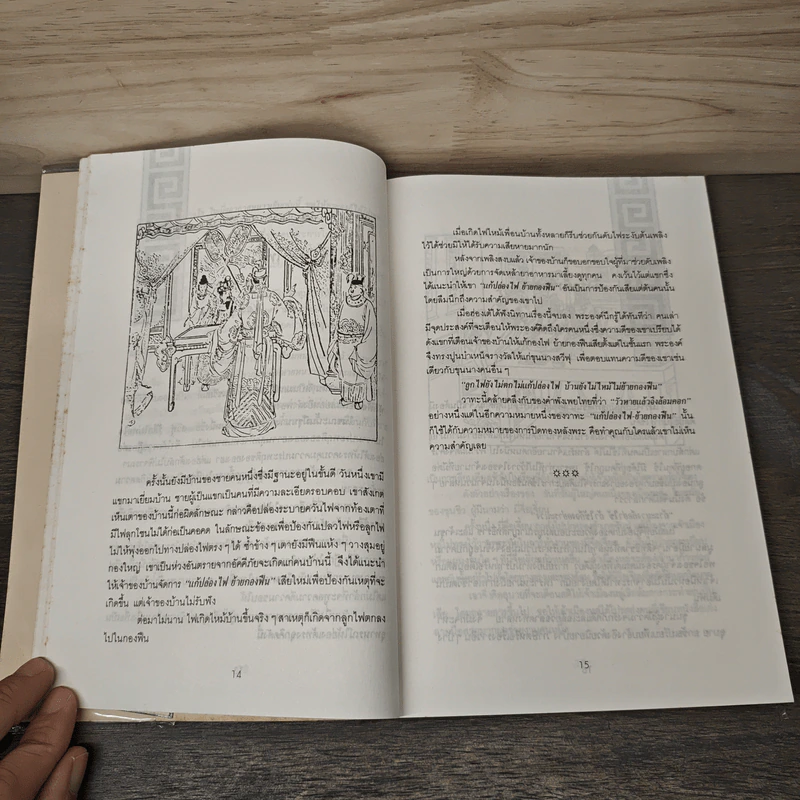 ครั้งนั้นยังมีบ้านของชายคนหนึ่งซึ่งมีฐานะอยู่ในขั้นดี วันหนึ่งเขามี
แขกมาเยี่ยมบ้าน ชายผู้เป็นแขกเป็นคนที่มีความละเอียดรอบคอบ เขาสังเกต
เห็นเตาของบ้านนี้ก่อผิดลักษณะ กล่าวคือปล่องระบายควันไฟจากท้องเตาที่
มีไฟลุกโชนไม่ได้ก่อเป็นคอคด ในลักษณะข้องอเพื่อป้องกันเปลวไฟหรือลูกไฟ
ไม่ให้พุ่งออกไปทางปล่องไฟตรง ๆ ได้ ซ้ำข้าง ๆ เตายังมีฟืนแห้ง ๆ วางสุมอยู่
กองใหญ่ เขาเป็นห่วงอันตรายจากอัคคีภัยจะเกิดแก่คนบ้านนี้ จึงได้แนะนำ
ให้เจ้าของบ้านจัดการ "แก้ปล่องไฟ ย้ายกองฟืน" เสียใหม่เพื่อป้องกันเหตุที่จะ
เกิดขึ้น แต่เจ้าของบ้านไม่รับฟัง
ต่อมาไม่นาน ไฟเกิดไหม้บ้านขึ้นจริง ๆ สาเหตุก็เกิดจากลูกไฟตกลง
ไปในกองฟืน
14
เมื่อเกิดไฟไหม้เพื่อนบ้านทั้งหลายก็รีบช่วยกันดับไฟระงับต้นเพลิง
ไว้ได้ช่วยมิให้ได้รับความเสียหายมากนัก
หลังจากเพลิงสงบแล้ว เจ้าของบ้านก็ขอบอกขอบใจผู้ที่มาช่วยดับเพลิง
เป็นการใหญ่ด้วยการจัดเหล้ายาอาหารมาเลี้ยงดูทุกคน คงเว้นไว้แต่แขกซึ่ง
ได้แนะนำให้เขา "แก้ปล่องไฟ ย้ายกองฟืน" อันเป็นการป้องกันเสียแต่ต้นคนนั้น
โดยลืมนึกถึงความสำคัญของเขาไป
เมื่อฮ่องเต้ได้ฟังนิทานเรื่องนี้จบลง พระองค์นึกรู้ได้ทันทีว่า คนเล่า
มีจุดประสงค์ที่จะเตือนให้พระองค์คิดถึงใครคนหนึ่งซึ่งความดีของเขาเปรียบได้
ดังแขกที่เตือนเจ้าของบ้านให้แก้กองไฟ ย้ายกองฟืนเสียตั้งแต่ในชั้นแรก พระองค์
จึงทรงปูนบำเหน็จรางวัลให้แก่ขุนนางสวีฟุ เพื่อตอบแทนความดีของเขาเช่น
เดียวกับขุนนางคนอื่น ๆ
"ลูกไฟยังไม่ตกไม่แก้ปล่องไฟ บ้านยังไม่ไหม้ไม่ย้ายกองฟืน"
วาทะนี้คล้ายคลึงกับของคำพังเพยไทยที่ว่า "วัวหายแล้วจึงล้อมคอก"
อย่างหนึ่งแต่ในอีกความหมายหนึ่งของวาทะ "แก้ปล่องไฟ-ย้ายกองฟืน" นั้น
ก็ใช้ได้กับความหมายของการปิดทองหลังพระ คือทำคุณกับใครแล้วเขาไม่เห็น
ความสำคัญเลย
15